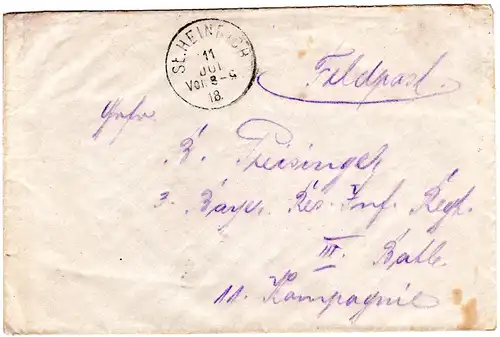 St. HEINRICH
11
JUL
Vor. 8-9
18.
Feldpost.
Gefr.
B. Preisinger
3. Bayr. Res. Inf. Regt.
III. Batl.
11. Kompagnie